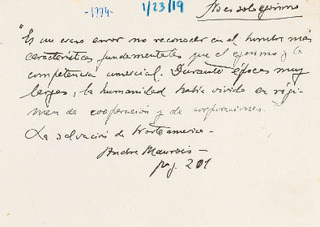 -1774-
1/23/19
"Es un craso error no reconocer en el hombre más
características fundamentales que el egoísmo y la
competencia comercial. Durante épocas muy
largas, la humanidad había vivido en régi-
men de cooperación y de corporaciones."
La salvación de Norteamérica -
André Maurois -
pag. 201